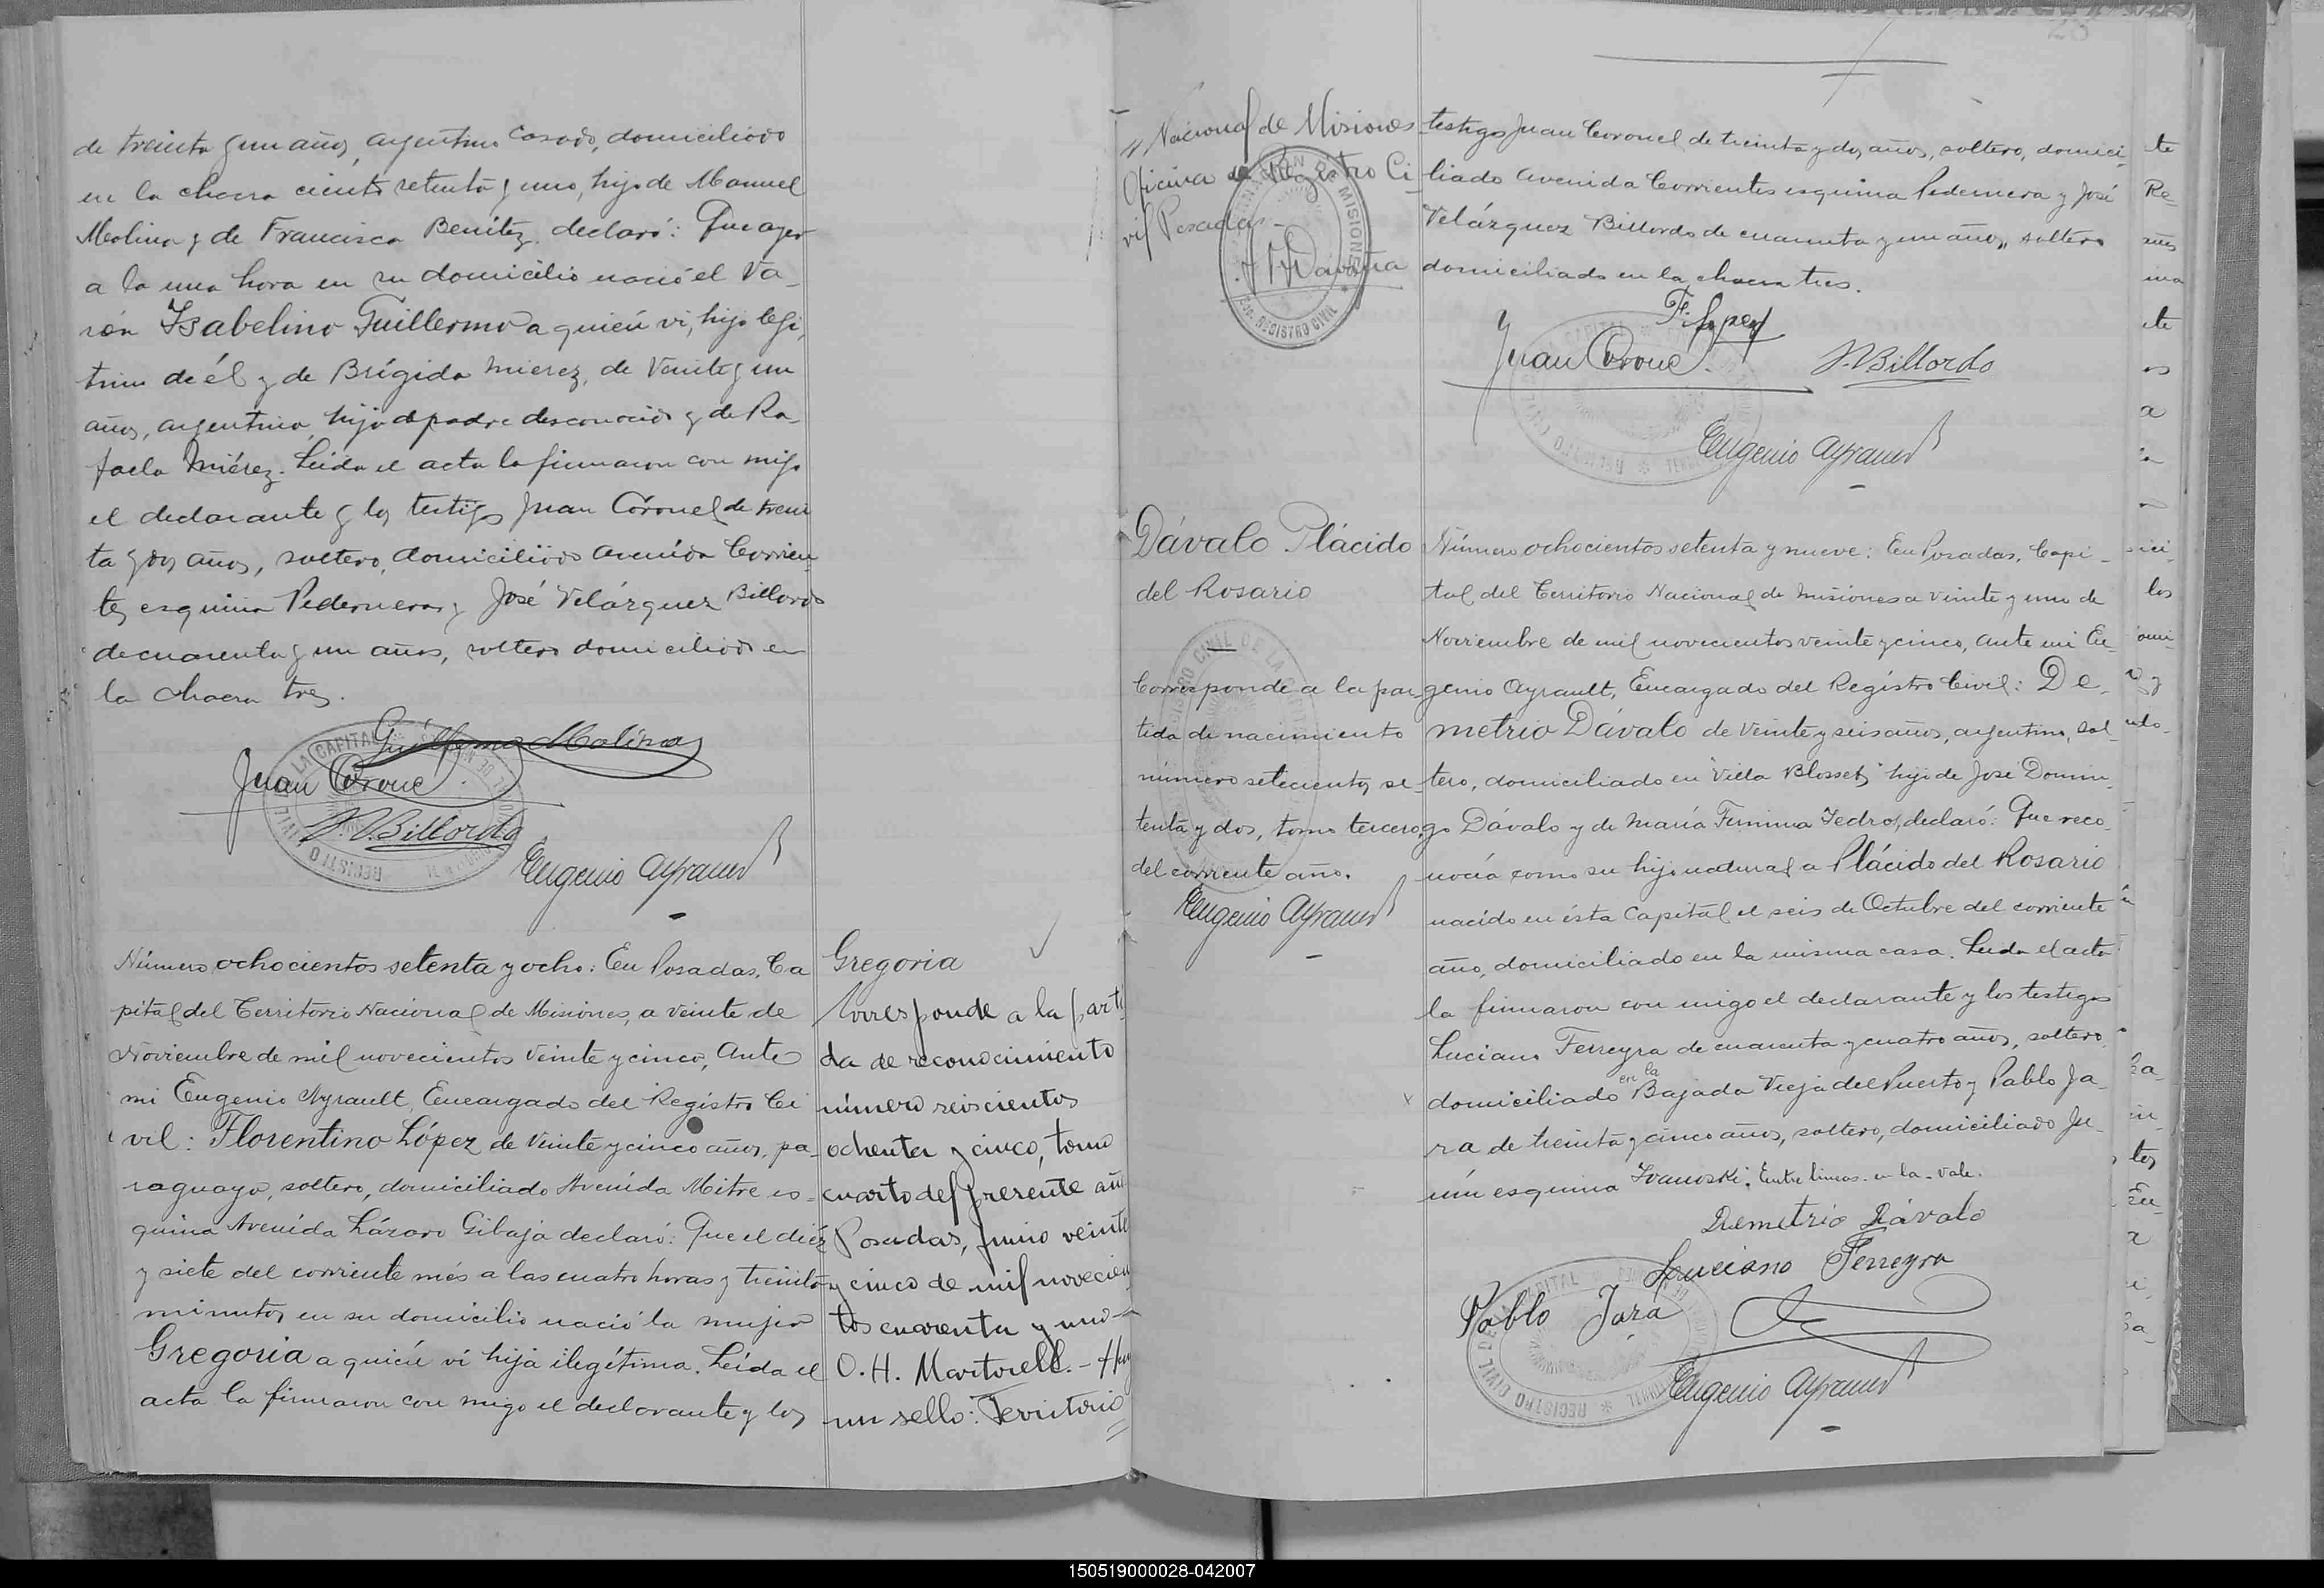 de treinta y un años, argentino casado, domiciliado
en la chacra ciento setenta y uno, hijo de Manuel
Molina y de Francisca Benítez, declaró: Que ayer
a la una hora en su domicilio nació el va-
rón Isabelino Guillermo a quien vi, hijo legí-
timo de él y de Brígida Mierez, de veinte y un
años, argentina, hija de padre desconocido y de Ra-
faela Miérez. Leida el acta la firmaron con migo
el declarante y los testigos Juan Coronel de trein
ta y dos años, soltero, domiciliado avenida Corrien-
tes esquina Pedernera y José Velázquez Billordo
de cuarenta y un años, soltero domiciliado en
la chacra tres.
Guillermo Molina
Juan Corone
J. V. Billordo
Eugenio Ayrault
Número ochocientos setenta y ocho: En Posadas, Ca
pital del Territorio Nacional de Misiones, a veinte de
Noviembre de mil novecientos veinte y cinco, Ante
mi Eugenio Ayrault, Encargado del Registro Ci
vil: Florentino López de veinte y cinco años, pa-
raguayo, soltero, domiciliado Avenida Mitre es-
quina Avenida Lázaro Gibaja declaró: Que el diéz
y siete del corriente més a las cuatro horas y treinta
minutos en su domicilio nació la mujer
Gregoria a quién vi hija ilegítima. Leída el
acta la firmaron con migo el declarante y los
Gregoria
Corresponde a la parti
da de reconocimiento
número seiscientos
ochenta y cinco, tomo
cuarto del presente año
Posadas, Junio veinte
y cinco de mil novecien
tos cuarenta y uno-
O. H. Martorell. - Hay
un sello: Territorio
Nacional de Misiones
Oficina de Registro Ci-
vil Posadas-
testigos Juan Coronel de treinta y dos años, soltero, domici-
liado Avenida Corrientes esquina Pedernera y José
Velázquez Billordo de cuarenta y un años, soltero
domiciliado en la chacra tres.
F. Lopez
Juan Corone
J. V. Billordo
Eugenio Ayrault
Dávalo Plácido
del Rosario
Corresponde a la par-
tida de nacimiento
número setecientos se-
tenta y dos, tomo tercero,
del corriente año.
Eugenio Ayrault
Número ochocientos setenta y nueve: En Posadas, Capi-
tal del Territorio Nacional de Misiones a veinte y uno de
Noviembre de mil novecientos veinte y cinco, ante mi Eu-
genio Ayrault, Encargado del Registro Civil: De-
metrio Dávalo de veinte y seis años, argentino, sol-
tero, domiciliado en "Villa Blosset" hijo de José Domin-
go Dávalo y de María Fermina Ledro, declaró: Que reco-
nocía como su hijo natural a Plácido del Rosario
nacido en ésta Capital el seis de Octubre del corriente
año, domiciliado en la misma casa. Leida el acta
la firmaron con migo el declarante y los testigos
Luciano Ferreyra de cuarenta y cuatro años, soltero,
en la
domiciliado Bajada Vieja del Puerto y Pablo Ja-
ra de treinta y cinco años, soltero, domiciliado Ju-
nín esquina Ivanoski. Entre lineas- en la- vale.
Demetrio Dávalo
Luciano Ferreyra
Pablo Jara
Eugenio Ayrault
150519000028-042007